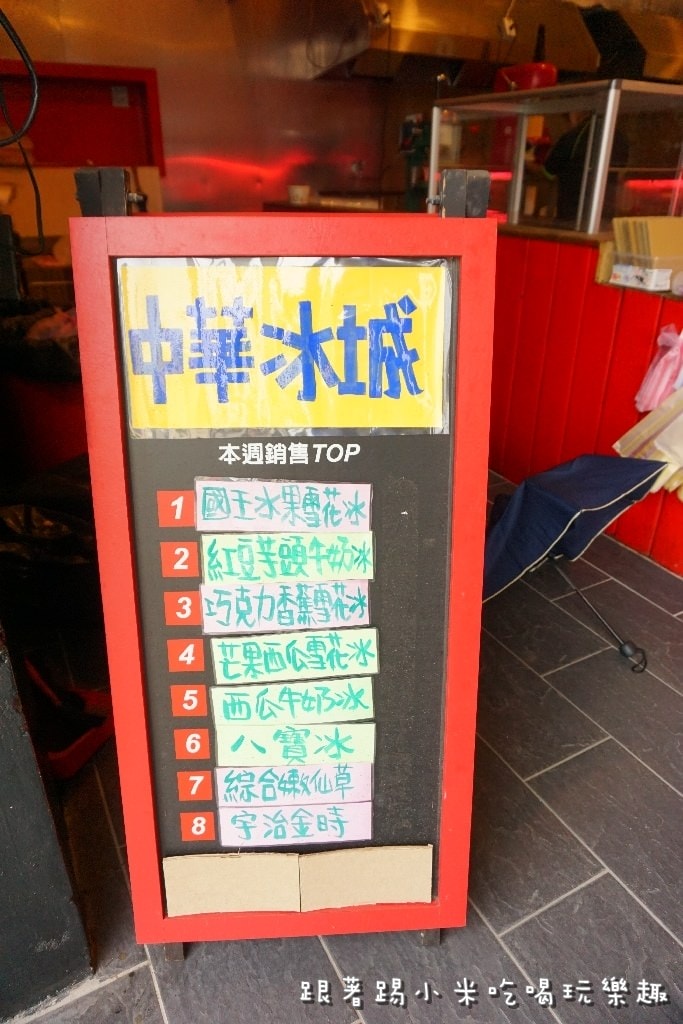 中華冰城
本週銷售TOP
1 國王水果雪花冰
2 紅豆芋頭牛奶冰
3 巧克力香蕉雪花冰
4 芒果西瓜雪花冰
5 西瓜牛奶冰
6 八寶冰
7 綜合嫩仙草
8 宇治金時
跟著踢小米吃喝玩樂趣